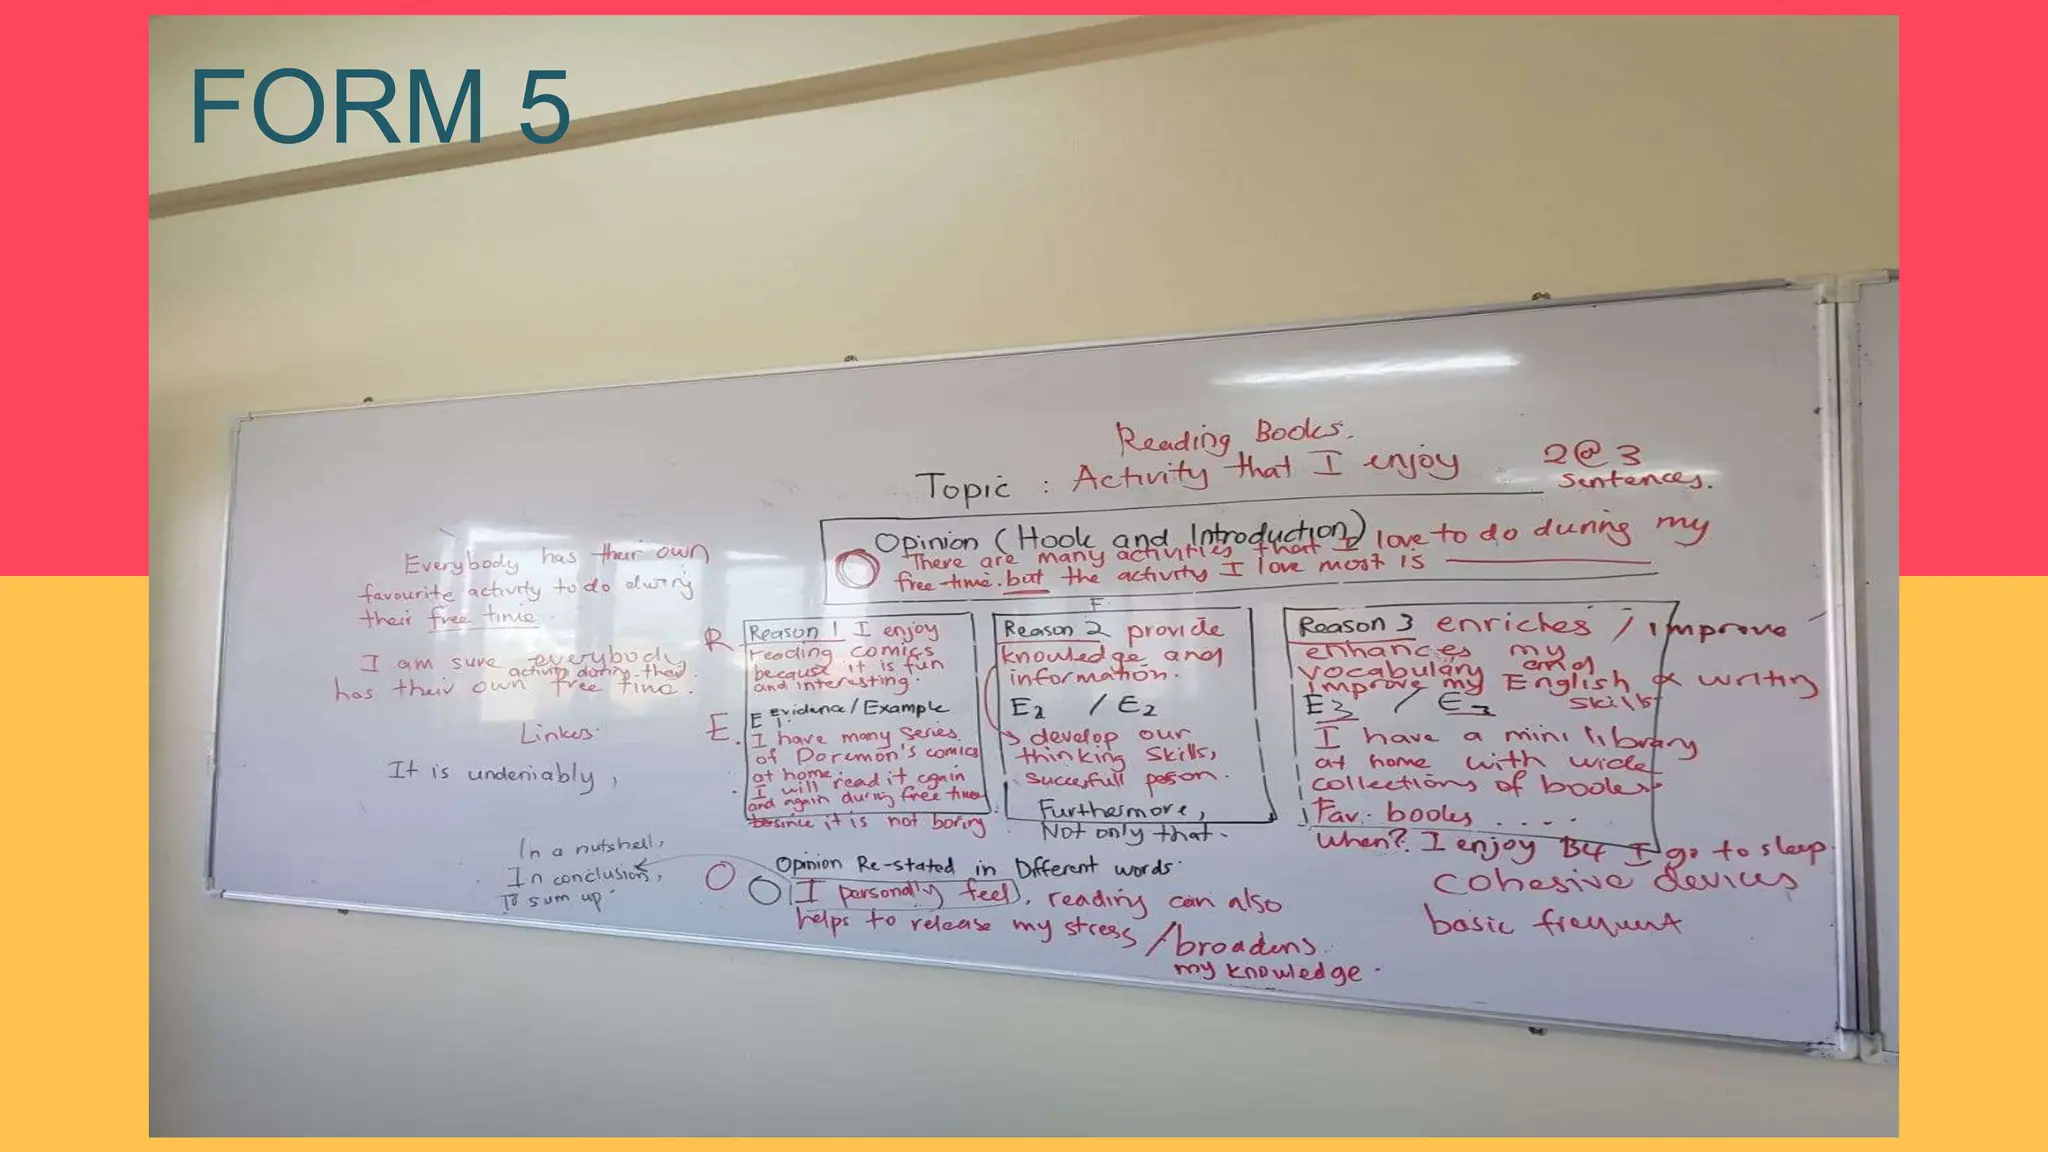 FORM 5
Reading Books.
Topic : Activity that I enjoy
2@3
sentences.
Opinion (Hook and Introduction)
There are many activities that I love to do during my
free time. but the activity I love most is
Everybody has their own
favourite activity to do during
their free time.
I am sure everybody
activity during their
has their own free time.
Linkers.
It is undeniably,
R
Reason 1 I enjoy
reading comics
because it is fun
and interesting.
E
Evidence/Example
E 1.
I have many series
of Doremon's comics
at home.
I will read it again
and again during free time
since it is not boring
F.
Reason 2 provide
knowledge and
information.
E2 / E2
develop our
thinking skills,
succesfull person.
Furthermore,
Not only that.
Reason 3 enriches / improve
enhances my
vocabulary and
improve my English & writing
skills
E3 / E3
I have a mini library
at home with wide
collections of books
Fav. books . . . .
When? I enjoy B4 I go to sleep.
cohesive devices
basic frequent
In a nutshell,
In conclusion,
To sum up
Opinion Re-stated in Different words.
I personally feel, reading can also
helps to release my stress / broadens
my knowledge.